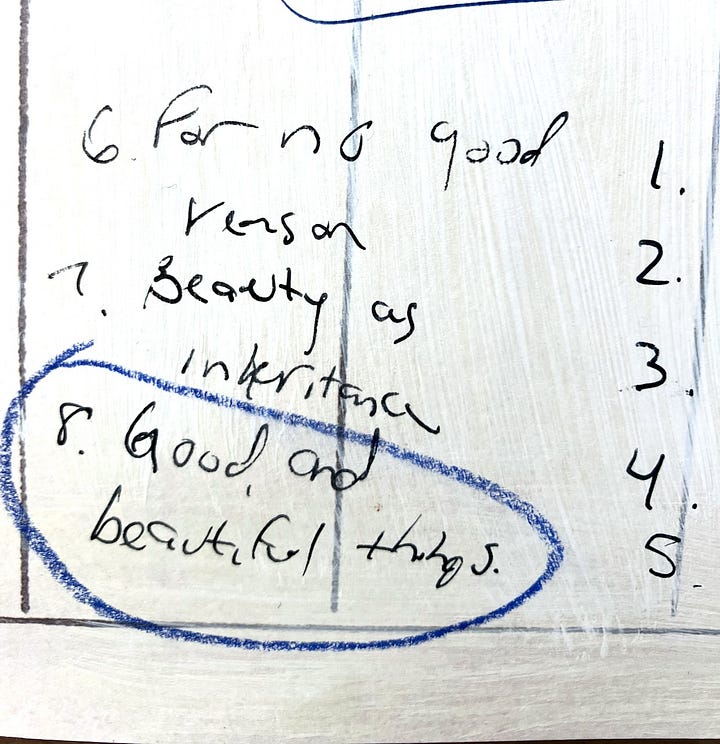 6. For no good
reason
7. Beauty as
inheritance
8. Good and
beautiful things.
1.
2.
3.
4.
5.